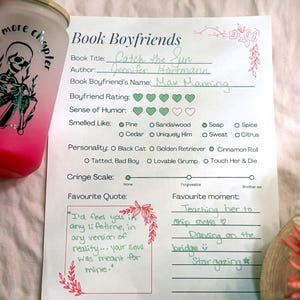 more chapter
Book Boyfriends
Book Title: Catch the Sun
Author: Jennifer Hartmann
Book Boyfriend's Name: Max Manning
Boyfriend Rating:
Sense of Humor:
Smelled Like: Pine Sandalwood Soap Spice
Cedar Uniquely Him Sweat Citrus
Personality: Black Cat Golden Retriever Cinnamon Roll
Tatted, Bad Boy Lovable Grump Touch Her & Die
Cringe Scale:
None Forgiveable Brother ew
Favourite Quote: Favourite moment:
"I'd feel you in
any lifetime, in
any version of
reality... your soul
was meant for
mine."
Teaching her to
skip rocks
Dancing on the
bridge
Stargazing